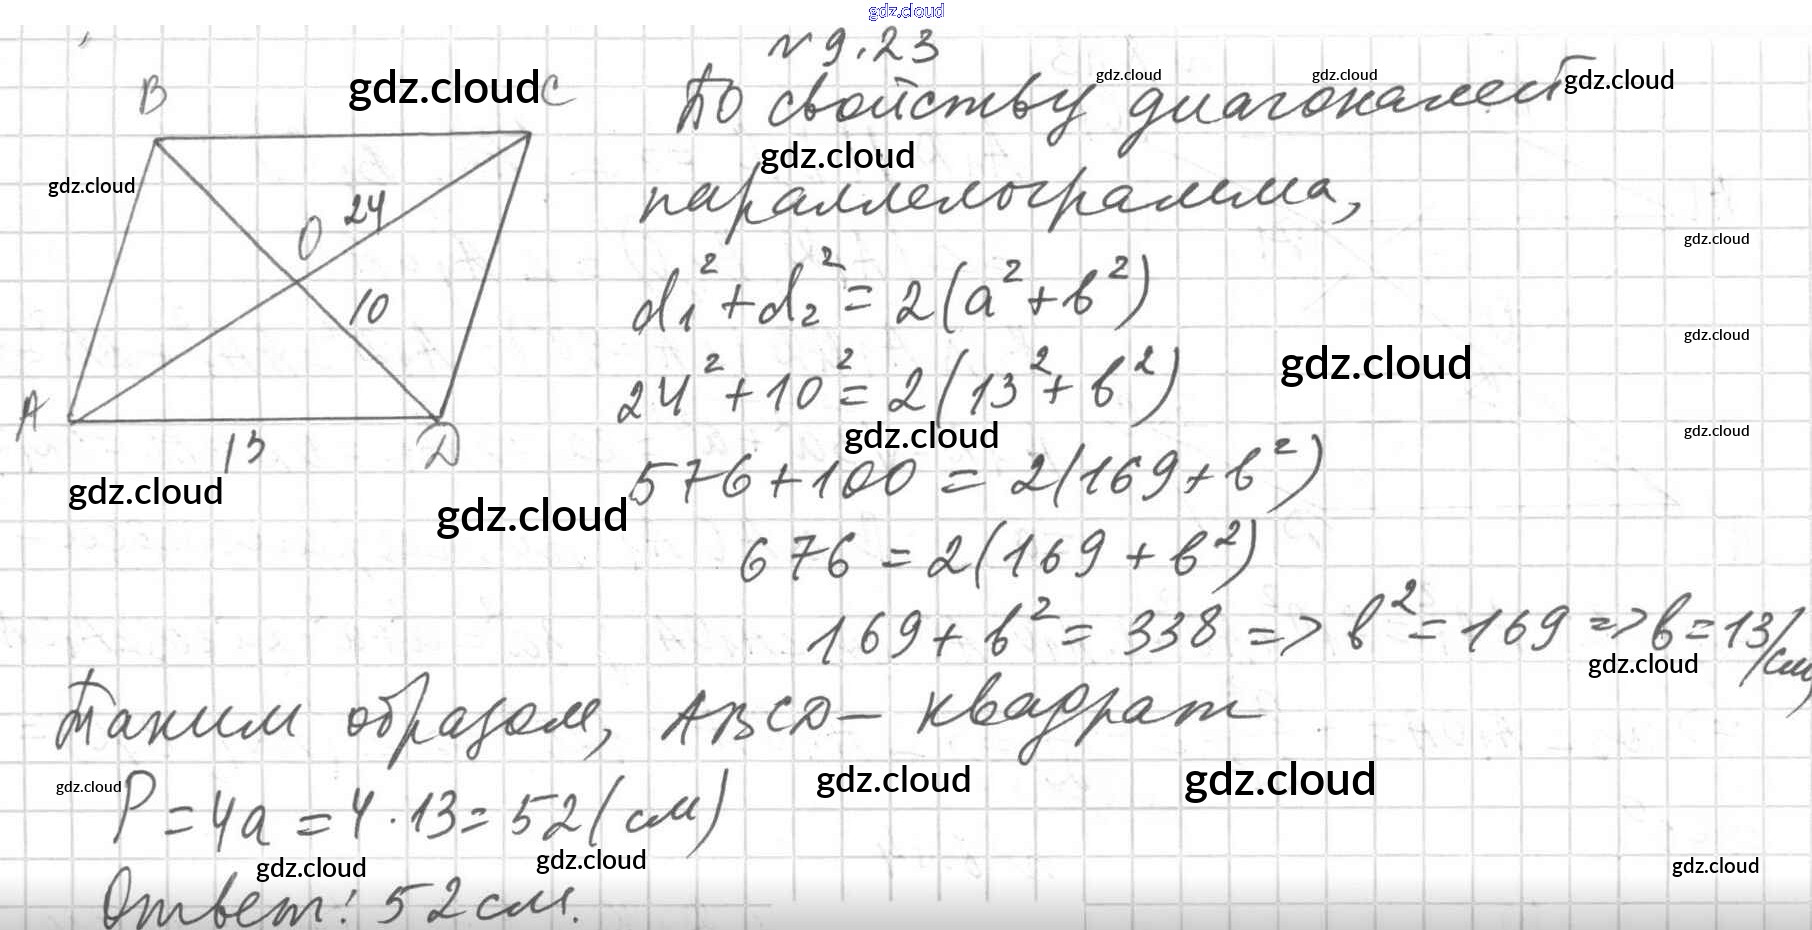 gdz.cloud
№ 9.23
B
gdz.cloud
C
По свойству диагоналей
gdz.cloud
gdz.cloud
gdz.cloud
gdz.cloud
gdz.cloud
24
O
параллелограмма,
gdz.cloud
10
d₁² + d₂² = 2(a² + b²)
gdz.cloud
24² + 10² = 2(13² + b²)
gdz.cloud
A
13
D
gdz.cloud
gdz.cloud
576 + 100 = 2(169 + b²)
gdz.cloud
gdz.cloud
676 = 2(169 + b²)
169 + b² = 338 => b² = 169 => b = 13 (см)
gdz.cloud
Таким образом, ABCD – квадрат
gdz.cloud
gdz.cloud
gdz.cloud
P = 4a = 4 · 13 = 52 (см)
gdz.cloud
gdz.cloud
gdz.cloud
Ответ: 52 см.